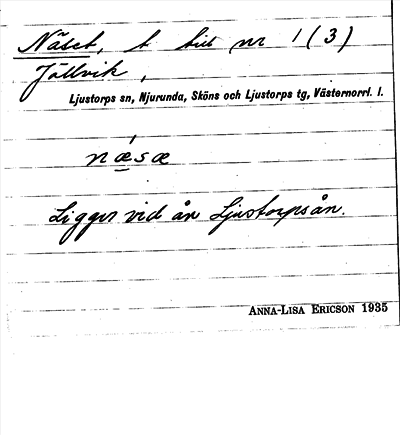 Näset, t. till nr 1 (3)
Jällvik,
Ljustorps sn, Njurunda, Sköns och Ljustorps tg, Västernorrl. l.
næ̀sæ
Ligger vid ån Ljustorpsån.
ANNA-LISA ERICSON 1935